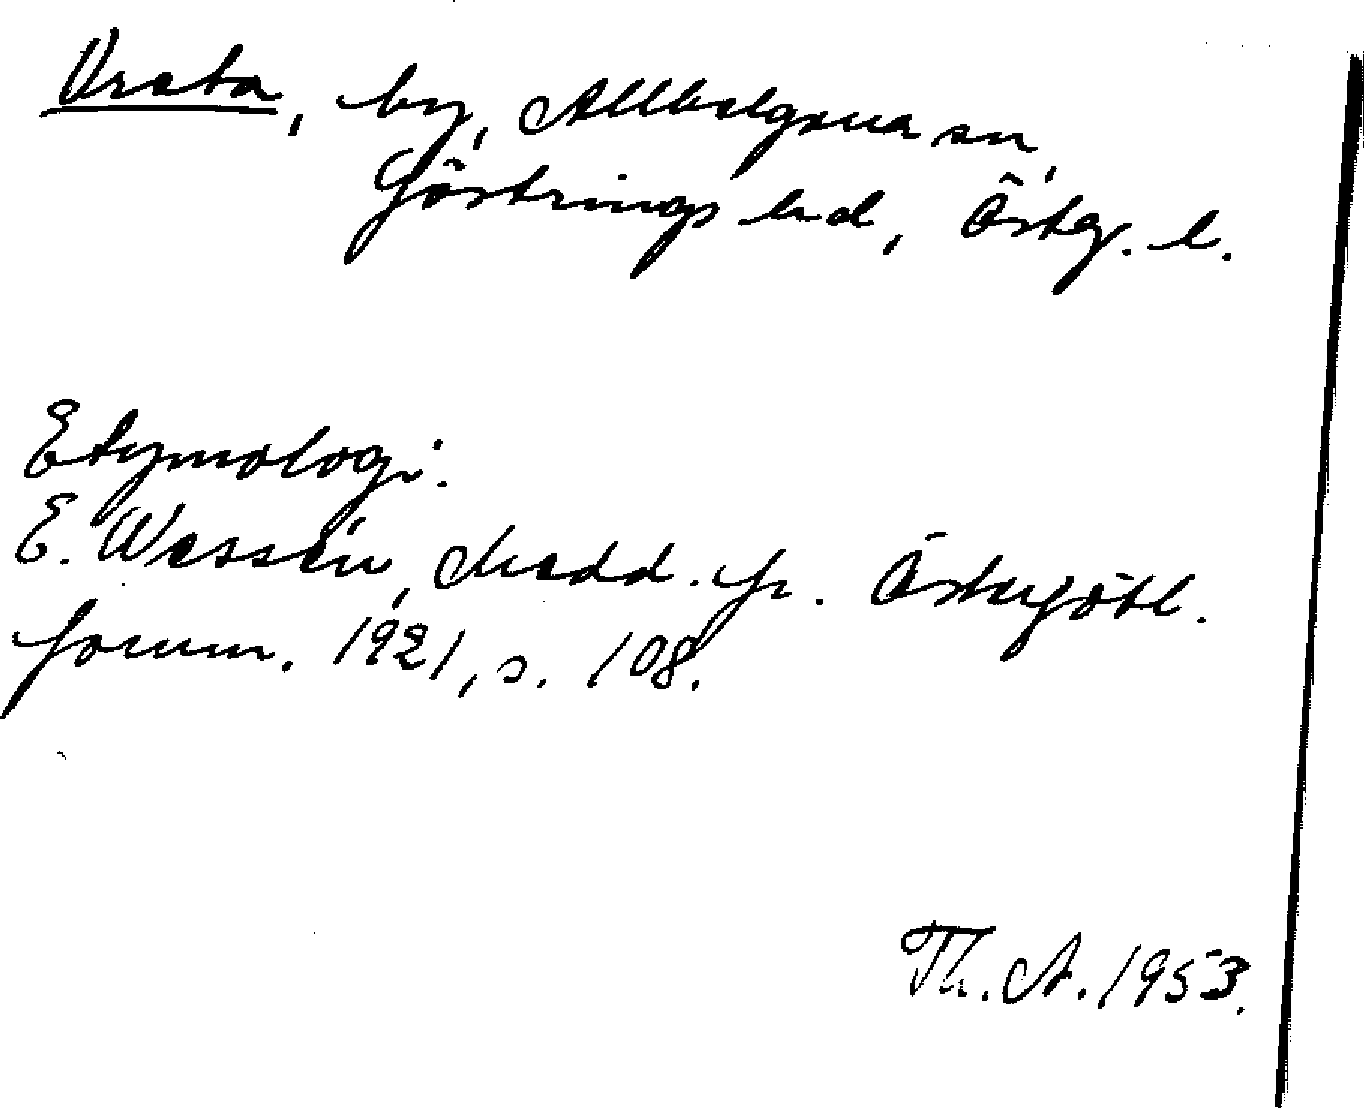 Vreta, by, Allhelgona sn,
Göstrings hd, Östg. l.
Etymologi.
E. Wessén, Medd. fr. Östergötl.
fornm. 1921, s. 108.
Th. A. 1953.